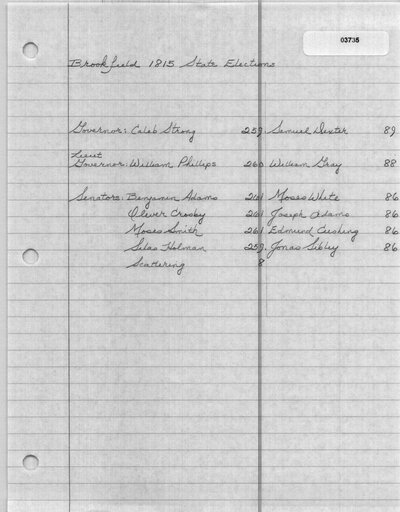 03735
Brookfield 1815 State Elections
Governor: Caleb Strong 259. Samuel Dexter 89
Lieut
Governor: William Phillips 260 William Gray 88
Senators: Benjamin Adams 261 Moses White 86
Oliver Crosby 261 Joseph Adams 86
Moses Smith 261 Edmund Cushing 86
Silas Holman 259. Jonas Sibley 86
Scattering 8